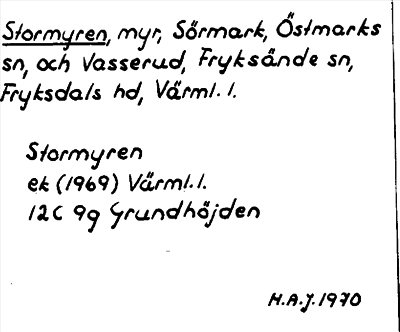 Stormyren, myr, Sörmark, Östmarks
sn, och Vasserud, Fryksände sn,
Fryksdals hd, Värml. l.
Stormyren
ek (1969) Värml. l.
12C 9g Grundhöjden
H.A.J. 1970